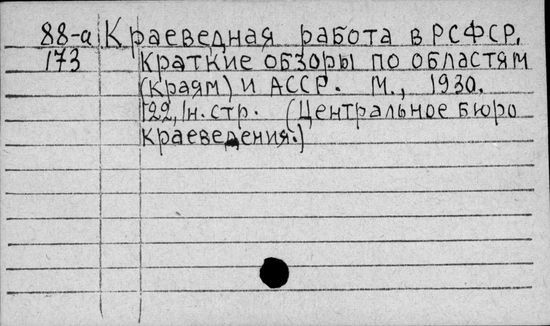 88-а Краеведная работа в РСФСР.
173 Краткие обзоры по областям
(краям) и АССР. М., 1930.
122, 1н. стр. (Центральное бюро
краеведения.)